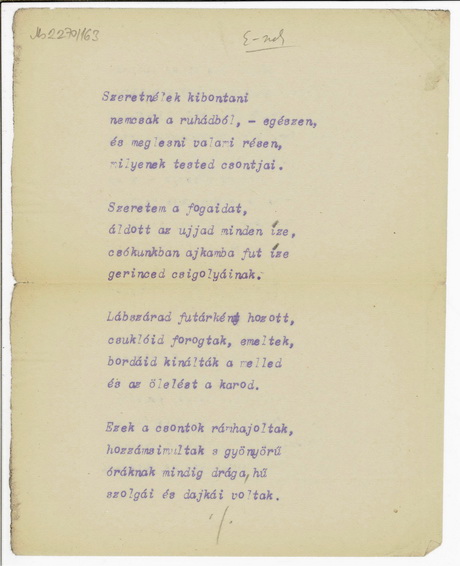 Ms 2270/163
E-nek
Szeretnélek kibontani
nemcsak a ruhádból, - egészen,
és meglesni valami résen,
milyenek tested csontjai.
Szeretem a fogaidat,
áldott az ujjad minden íze,
csókunkban ajkamba fut íze
gerinced csigolyáinak.
Lábszárad futárként hozott,
csuklóid forogtak, emeltek,
bordáid kinálták a melled
és az ölelést a karod.
Ezek a csontok ránhajoltak,
hozzámsimultak s gyönyörű
óráknak mindig drága, hű
szolgái és dajkái voltak.
./.